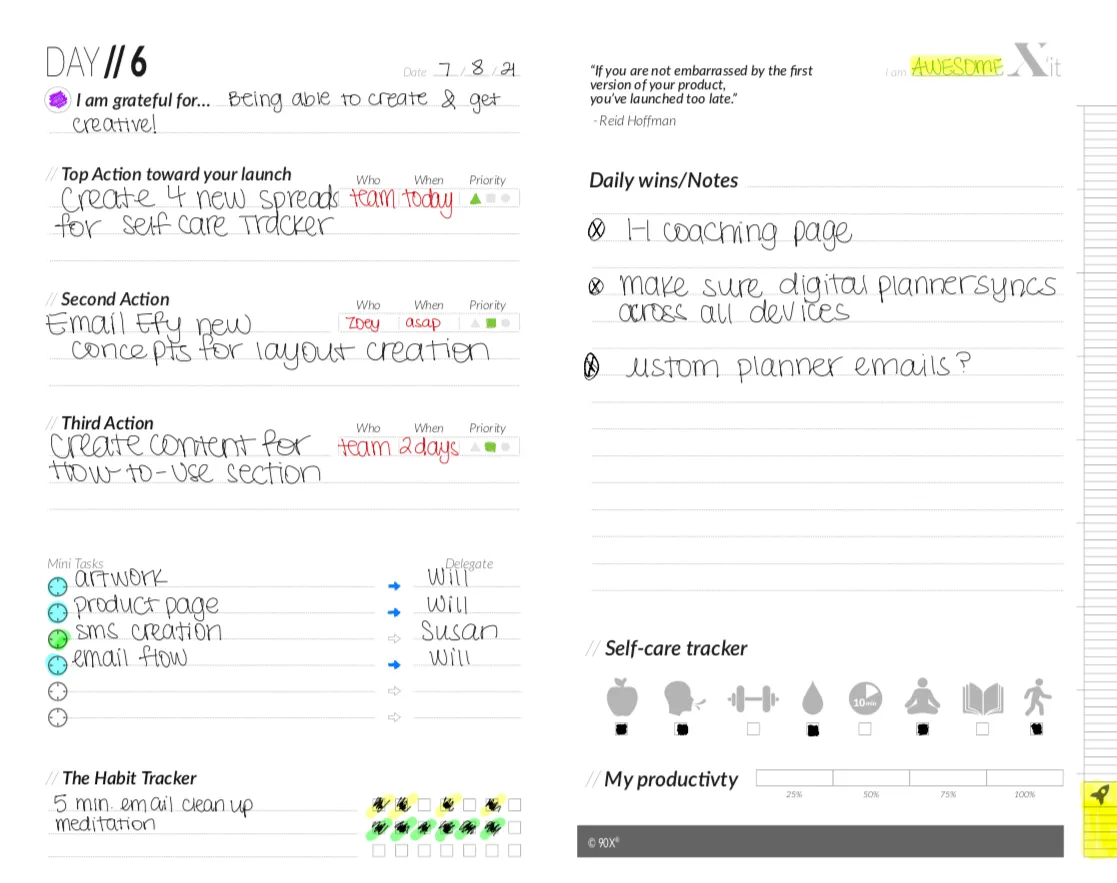 DAY//6
Date 7/8/21
I am grateful for... Being able to create & get
creative!
// Top Action toward your launch
Who When Priority
Create 4 new spreads team today
for self care Tracker
// Second Action
Who When Priority
Email Efy new Zoey asap
concepts for layout creation
// Third Action
Who When Priority
Create content for team 2 days
How-to-use section
Mini Tasks Delegate
artwork Will
product page Will
sms creation Susan
email flow Will
// The Habit Tracker
5 min. email clean up
meditation
"If you are not embarrassed by the first
version of your product,
you've launched too late."
- Reid Hoffman
I am AWESOME
X'it
Daily wins/Notes
1-1 coaching page
make sure digital planner syncs
across all devices
ustom planner emails?
// Self-care tracker
10min
// My productivty
25% 50% 75% 100%
© 90X®